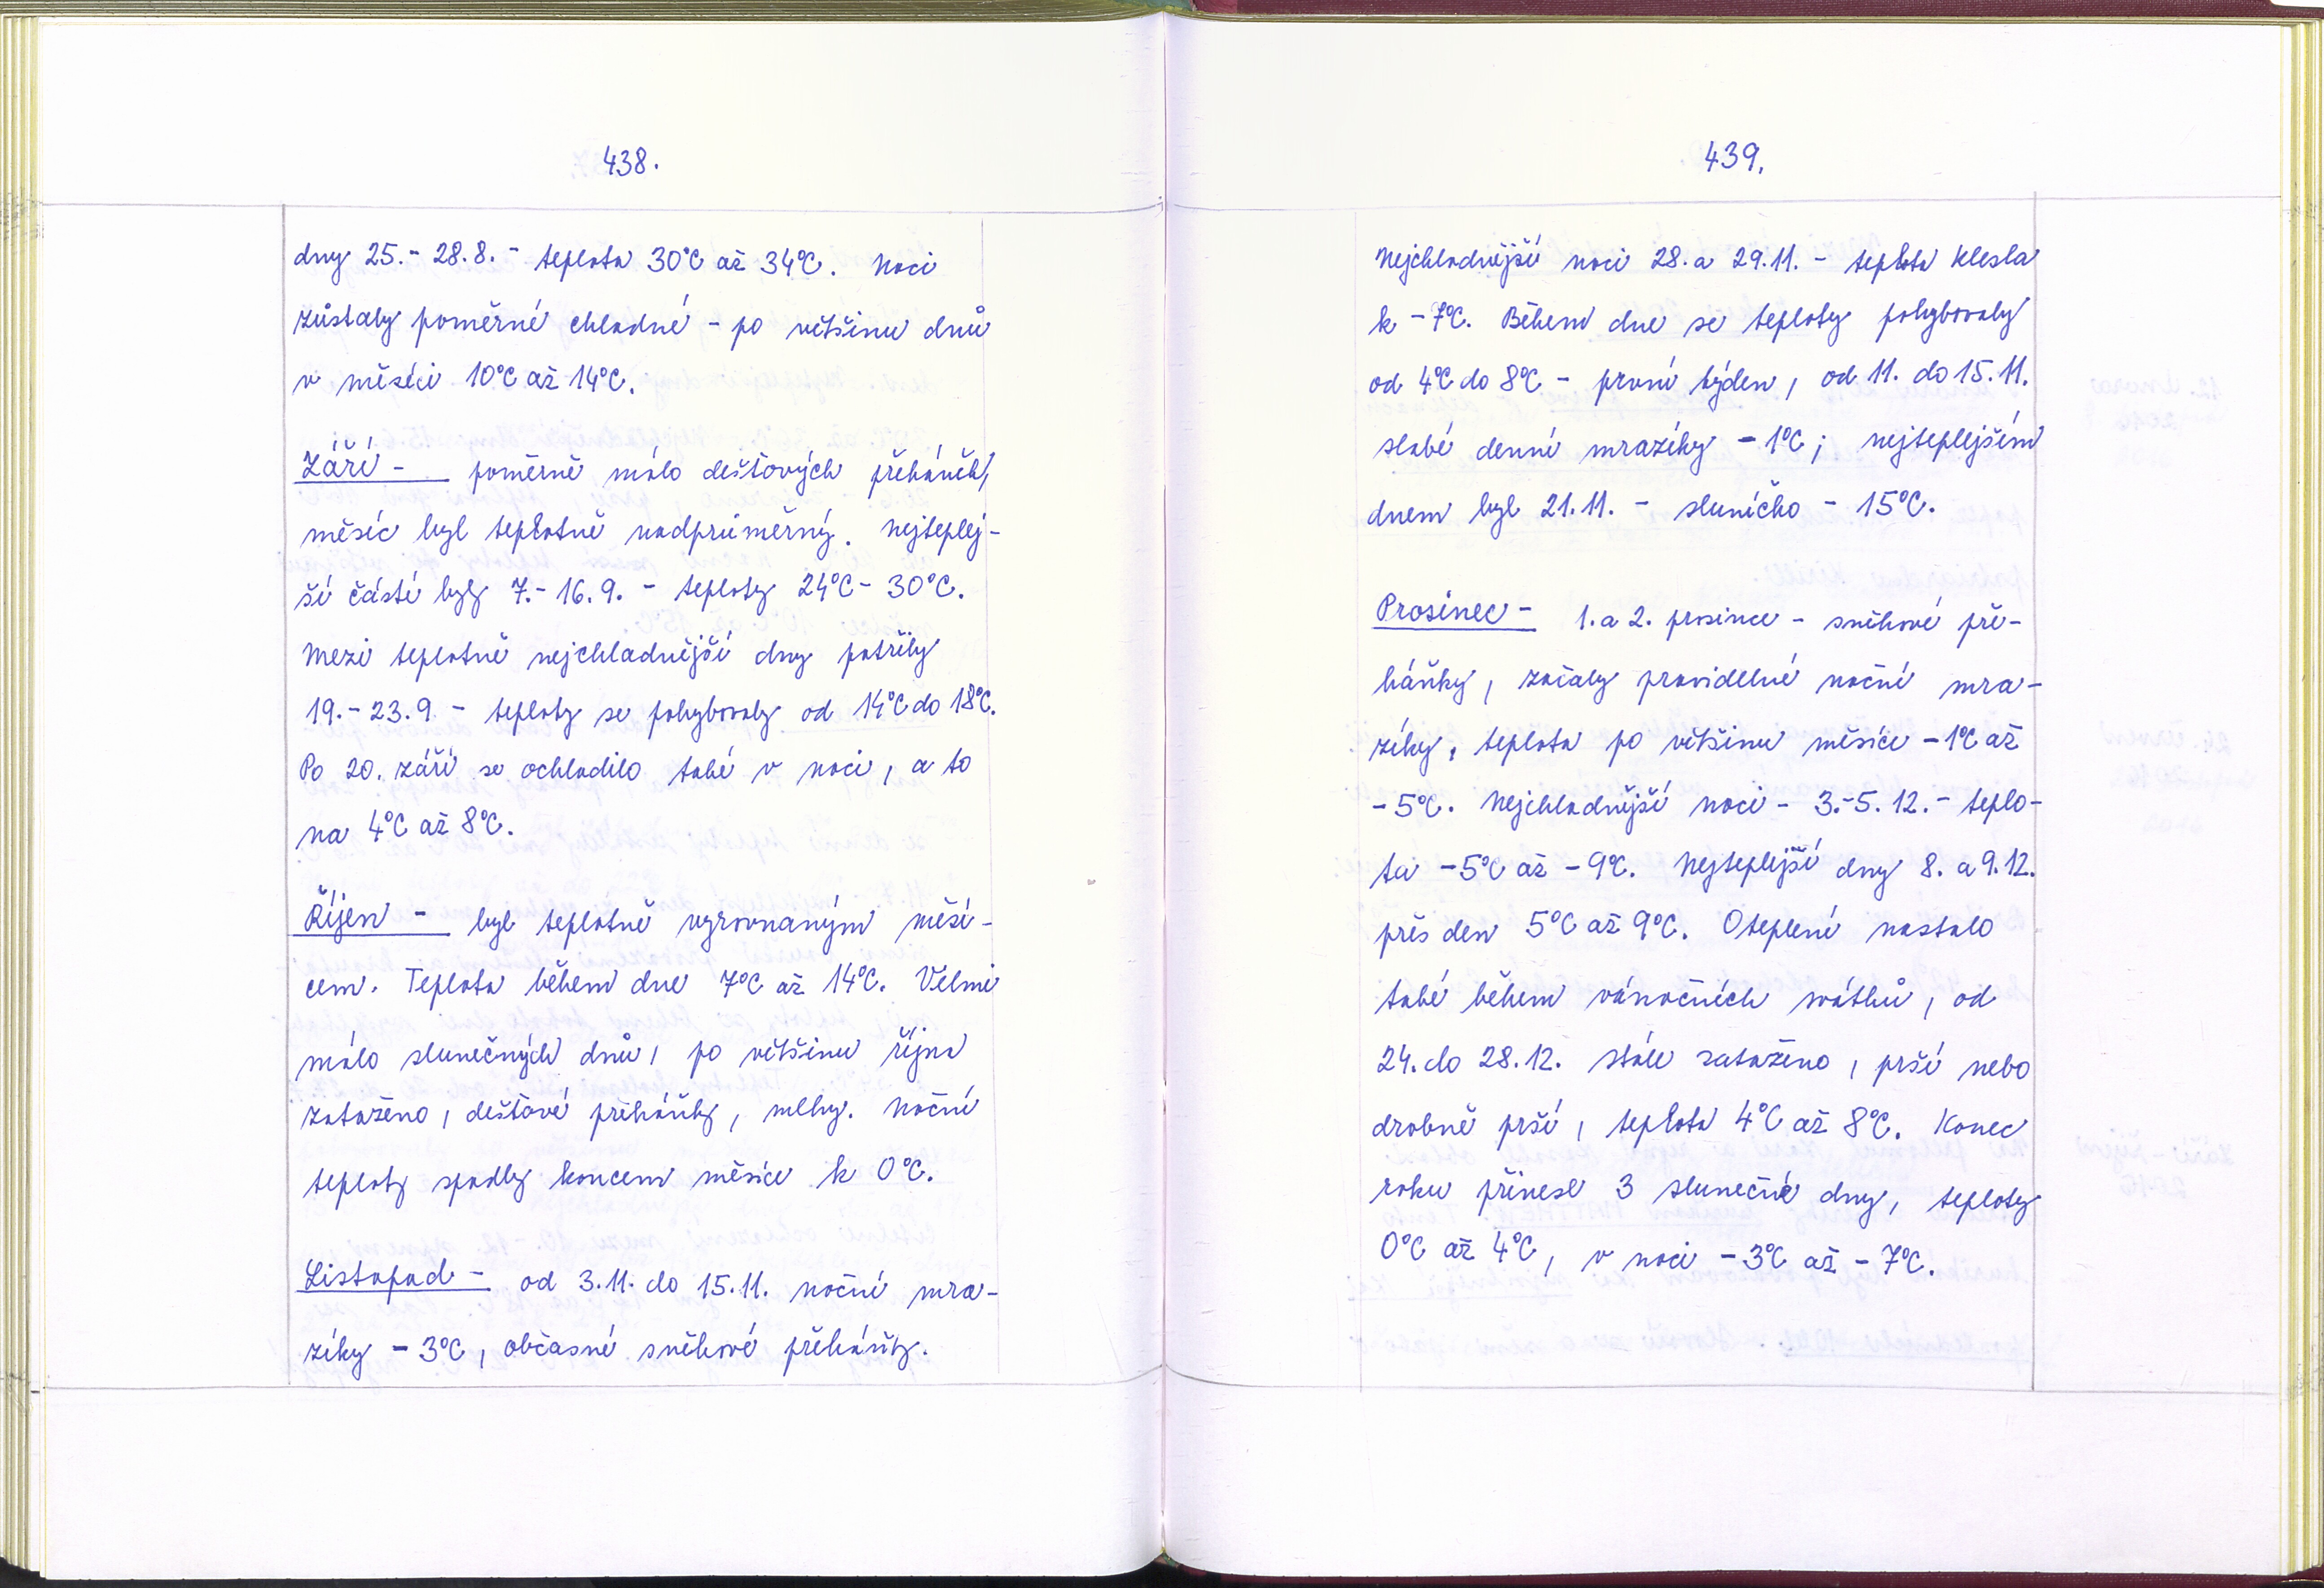 438.
dny 25.- 28.8. - teplota 30°C až 34°C. Noci
zůstaly poměrně chladné - po většinu dnů
v měsíci 10°C až 14°C.
Září - poměrně málo dešťových přeháněk,
měsíc byl teplotně nadprůměrný. Nejteplej-
ší částí byly 7.- 16.9. - teploty 24°C - 30°C.
Mezi teplotně nejchladnější dny patřily
19.- 23.9 - teploty se pohybovaly od 14°C do 18°C.
Po 20. září se ochladilo také v noci, a to
na 4°C až 8°C.
Říjen - byl teplotně vyrovnaným měsí-
cem. Teplota během dne 7°C až 14°C. Velmi
málo slunečných dnů, po většinu října
zataženo, dešťové přeháňky, mlhy. Noční
teploty spadly koncem měsíce k 0°C.
Listopad - od 3.11. do 15.11. noční mra-
zíky - 3°C, občasné sněhové přeháňky.
439.
Nejchladnější noci 28. a 29.11. - teplota klesla
k - 7°C. Během dne se teploty pohybovaly
od 4°C do 8°C - první týden, od 11. do 15.11.
slabé denní mrazíky - 1°C; nejteplejším
dnem byl 21.11. - sluníčko - 15°C.
Prosinec - 1. a 2. prosince - sněhové pře-
háňky, začaly pravidelné noční mra-
zíky, teplota po většinu měsíce - 1°C až
- 5°C. Nejchladnější noci - 3.- 5.12. - teplo-
ta - 5°C až - 9°C. Nejteplejší dny 8. a 9.12.
přes den 5°C až 9°C. Oteplení nastalo
také během vánočních svátků, od
24. do 28.12. stále zataženo, prší nebo
drobně prší, teplota 4°C až 8°C. Konec
roku přinesl 3 slunečné dny, teploty
0°C až 4°C, v noci - 3°C až - 7°C.